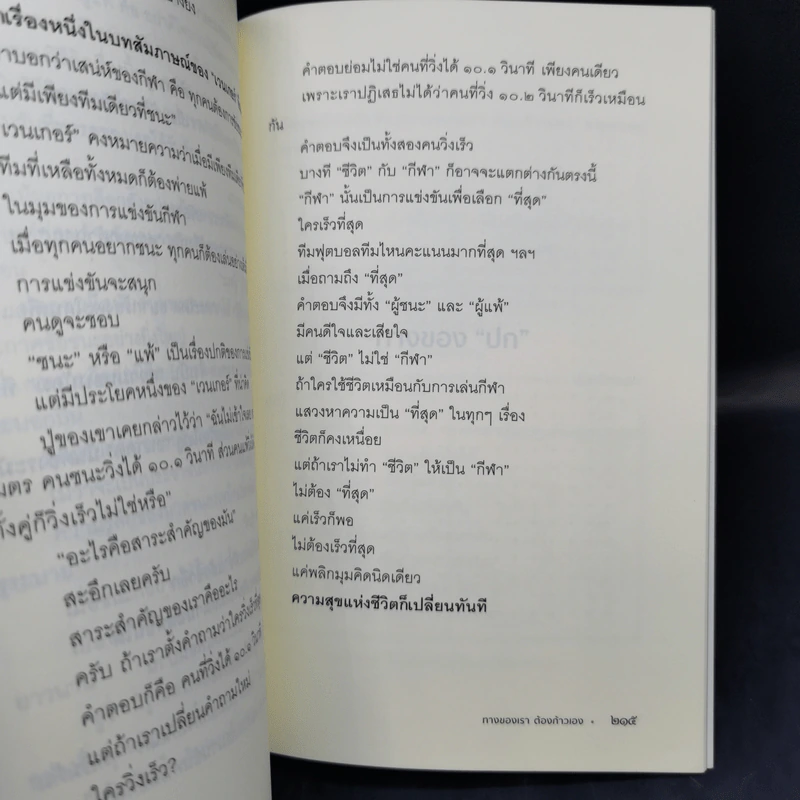 เรื่องหนึ่งในบทสัมภาษณ์ของ "เวนเกอร์"
บอกว่าเสน่ห์ของกีฬา คือ ทุกคนต้องการ
แต่มีเพียงทีมเดียวที่ชนะ"
เวนเกอร์" คงหมายความว่าเมื่อมีเพียง
ทีมที่เหลือทั้งหมดก็ต้องพ่ายแพ้
ในมุมของการแข่งขันกีฬา
เมื่อทุกคนอยากชนะ ทุกคนก็ต้องเล่นอย่าง
การแข่งขันจะสนุก
คนดูจะชอบ
"ชนะ" หรือ "แพ้" เป็นเรื่องปกติของการ
แต่มีประโยคหนึ่งของ "เวนเกอร์" ที่น่า
ปู่ของเขาเคยกล่าวไว้ว่า "ฉันไม่เข้าใจ
มตร คนชนะวิ่งได้ ๑๐.๑ วินาที ส่วนคนแพ้
ทั้งคู่ก็วิ่งเร็วไม่ใช่หรือ"
"อะไรคือสาระสำคัญของมัน"
สะอึกเลยครับ
สาระสำคัญของเราคืออะไร
ครับ ถ้าเราตั้งคำถามว่าใครวิ่งเร็วที่สุด
คำตอบก็คือ คนที่วิ่งได้ ๑๐.๑ วินาที
แต่ถ้าเราเปลี่ยนคำถามใหม่
ใครวิ่งเร็ว?
คำตอบย่อมไม่ใช่คนที่วิ่งได้ ๑๐.๑ วินาที เพียงคนเดียว
เพราะเราปฏิเสธไม่ได้ว่าคนที่วิ่ง ๑๐.๒ วินาทีก็เร็วเหมือน
กัน
คำตอบจึงเป็นทั้งสองคนวิ่งเร็ว
บางที "ชีวิต" กับ "กีฬา" ก็อาจจะแตกต่างกันตรงนี้
"กีฬา" นั้นเป็นการแข่งขันเพื่อเลือก "ที่สุด"
ใครเร็วที่สุด
ทีมฟุตบอลทีมไหนคะแนนมากที่สุด ฯลฯ
เมื่อถามถึง "ที่สุด"
คำตอบจึงมีทั้ง "ผู้ชนะ" และ "ผู้แพ้"
มีคนดีใจและเสียใจ
แต่ "ชีวิต" ไม่ใช่ "กีฬา"
ถ้าใครใช้ชีวิตเหมือนกับการเล่นกีฬา
แสวงหาความเป็น "ที่สุด" ในทุกๆ เรื่อง
ชีวิตก็คงเหนื่อย
แต่ถ้าเราไม่ทำ "ชีวิต" ให้เป็น "กีฬา"
ไม่ต้อง "ที่สุด"
แค่เร็วก็พอ
ไม่ต้องเร็วที่สุด
แค่พลิกมุมคิดนิดเดียว
ความสุขแห่งชีวิตก็เปลี่ยนทันที
ทางของเรา ต้องก้าวเอง • ๒๑๕